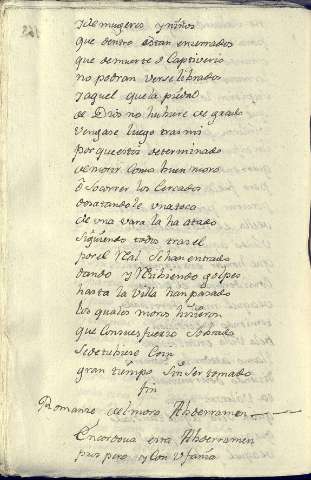 y de mugeres y niños
que dentro estan enserrados
que de muerte o Captiverio
no podran verse librados
y aquel que la piedad
de Dios no hubiere de grado
vengase luego tras mi
porque estoi determinado
de morir Como buen moro
o Socorrer los Cercados
una toca
de una vara la ha atado
Siguiendo todos tras el
por el Real Se han entrado
dando y Recibiendo golpes
hasta la Villa han pasado
los quales moros hizieron
que Con su esfuerzo Sobrado
Se detubiese Coin
gran tiempo Sin Ser tomado
fin
Romanze del moro Abderramen
En Cordova esta Abderramen
prospero y Con Ufania